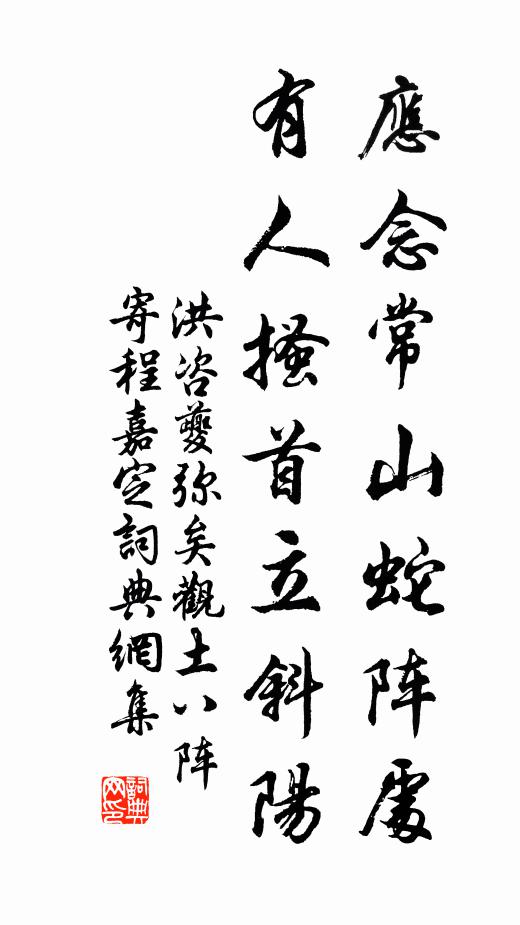 應念常山蛇阵處
有人搔首立斜陽
洪咨夔弥矣觀土八阵
寄程嘉定詞典網集
詞典网印